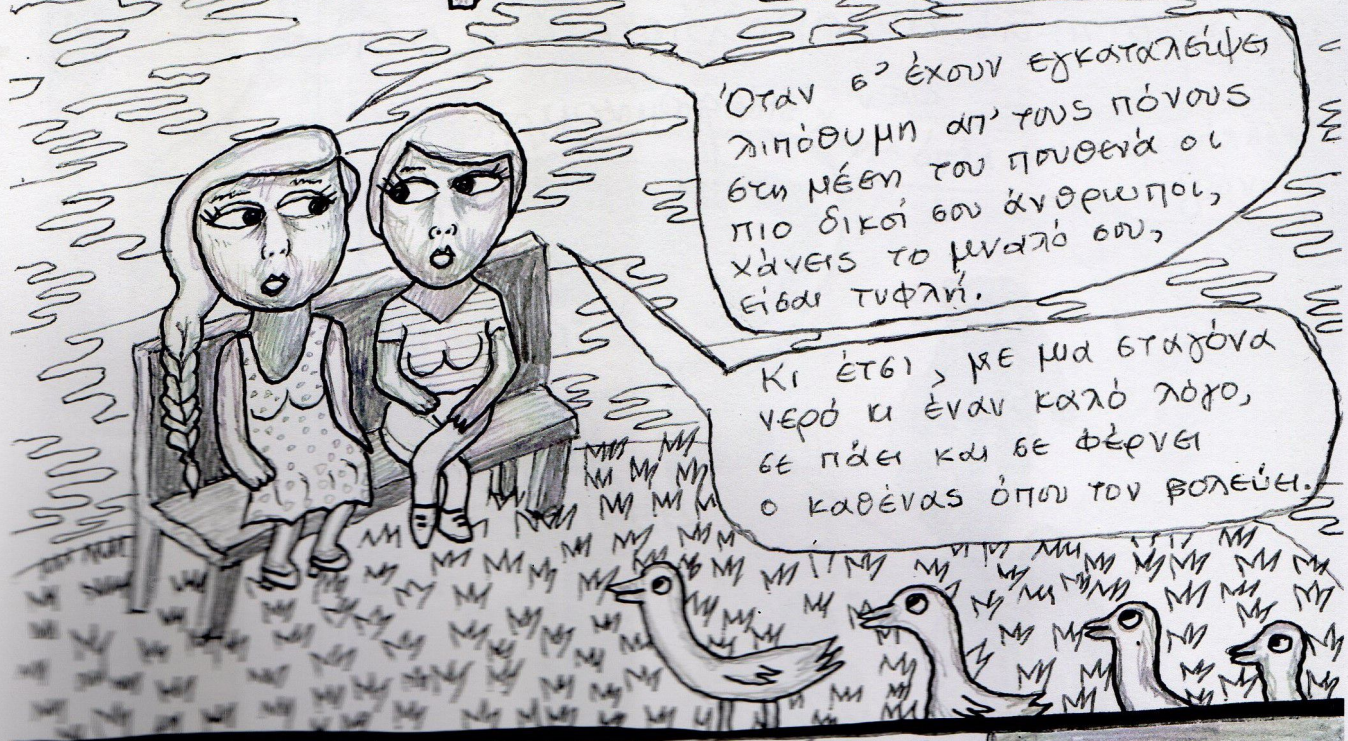 Όταν σ' έχουν εγκαταλείψει
λιπόθυμη απ' τους πόνους
στη μέση του πουθενά οι
πιο δικοί σου άνθρωποι,
χάνεις το μυαλό σου,
είσαι τυφλή.
Κι έτσι, με μια σταγόνα
νερό κι έναν καλό λόγο,
σε πάει και σε φέρνει
ο καθένας όπου τον βολεύει.